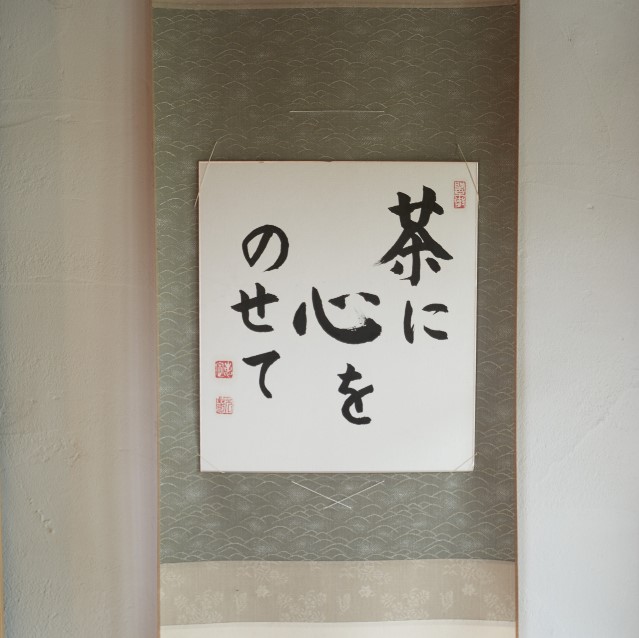 茶に
心を
のせて